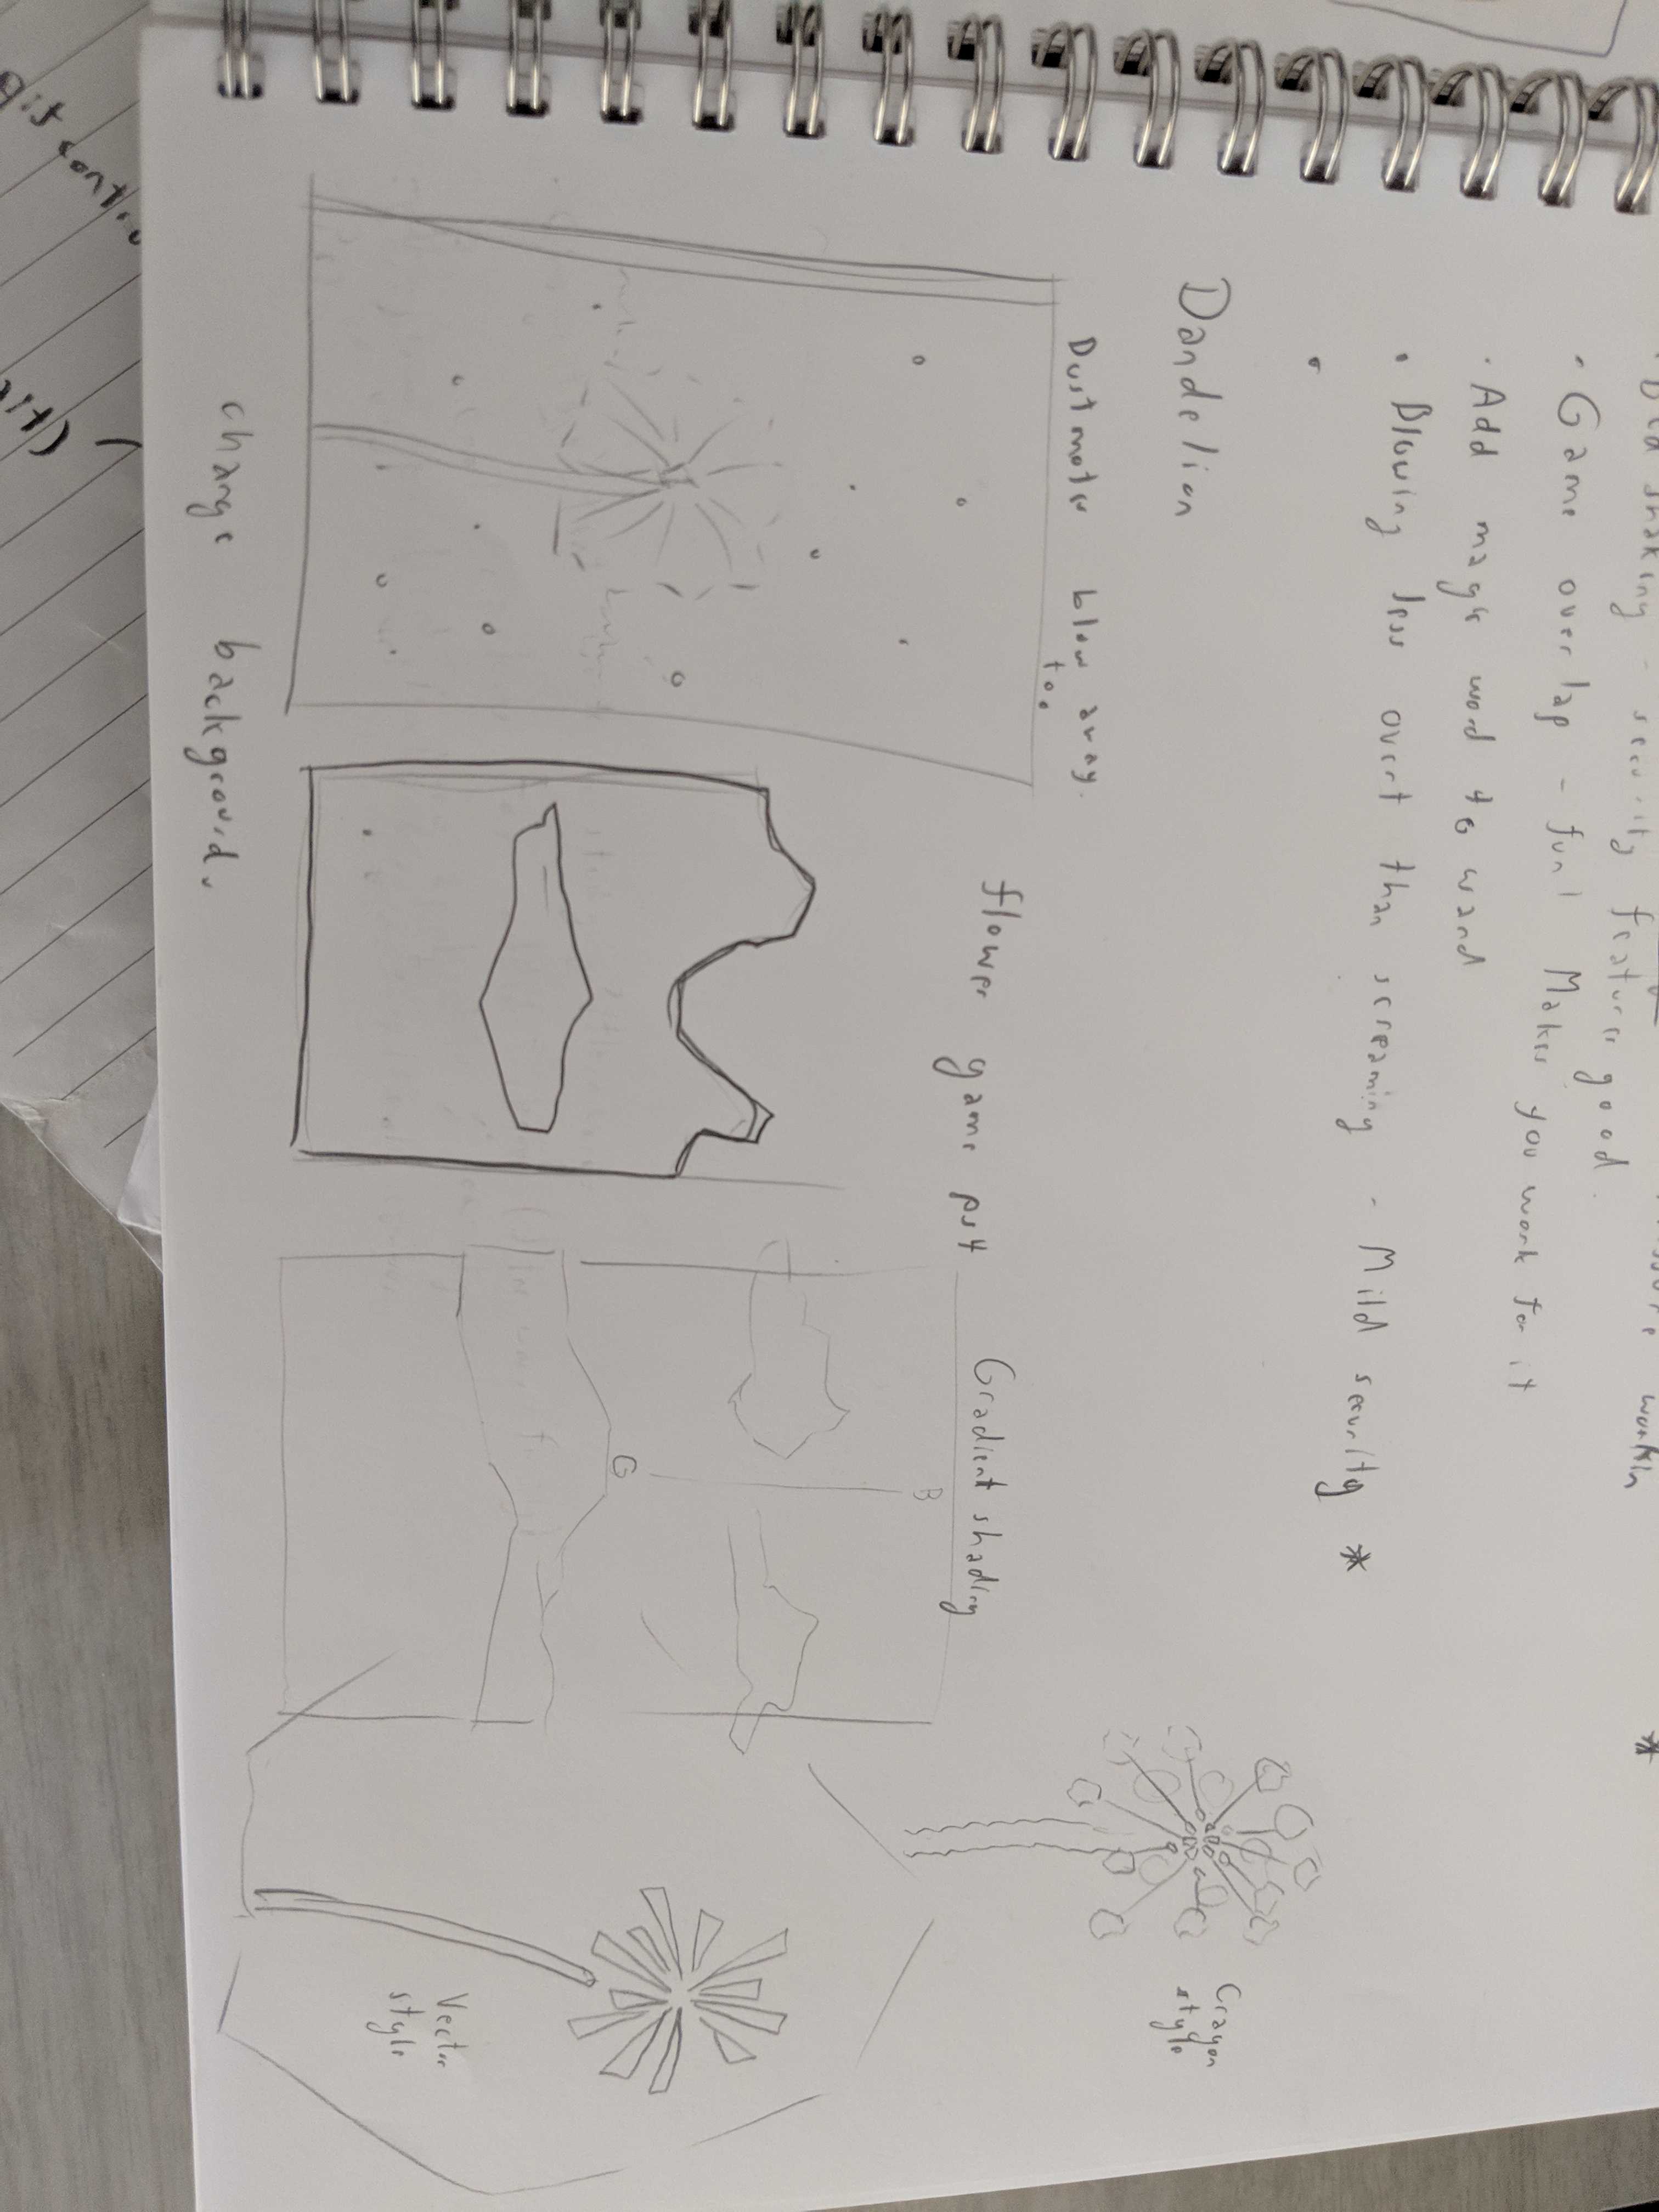 shaking - security features good.
• Game overlap - fun! Makes you work for it
• Add magic word to wand
• Blowing less overt than screaming - Mild security *
•
*
Dandelion
Dust motes blow away.
too
flower game ps4
Gradient shading
B
G
Crayon
style
Vector
style
change background.
Git